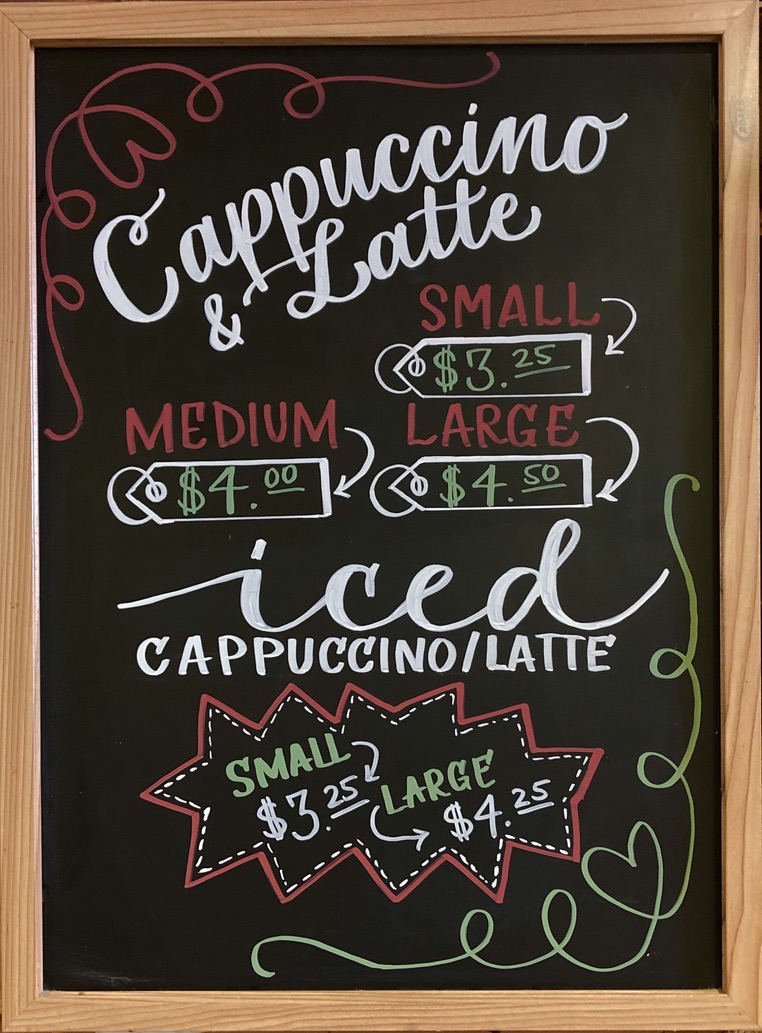 Cappuccino
& Latte
SMALL
$3.25
MEDIUM LARGE
$4.00 $4.50
iced
CAPPUCCINO/LATTE
SMALL
$3.25
LARGE
$4.25